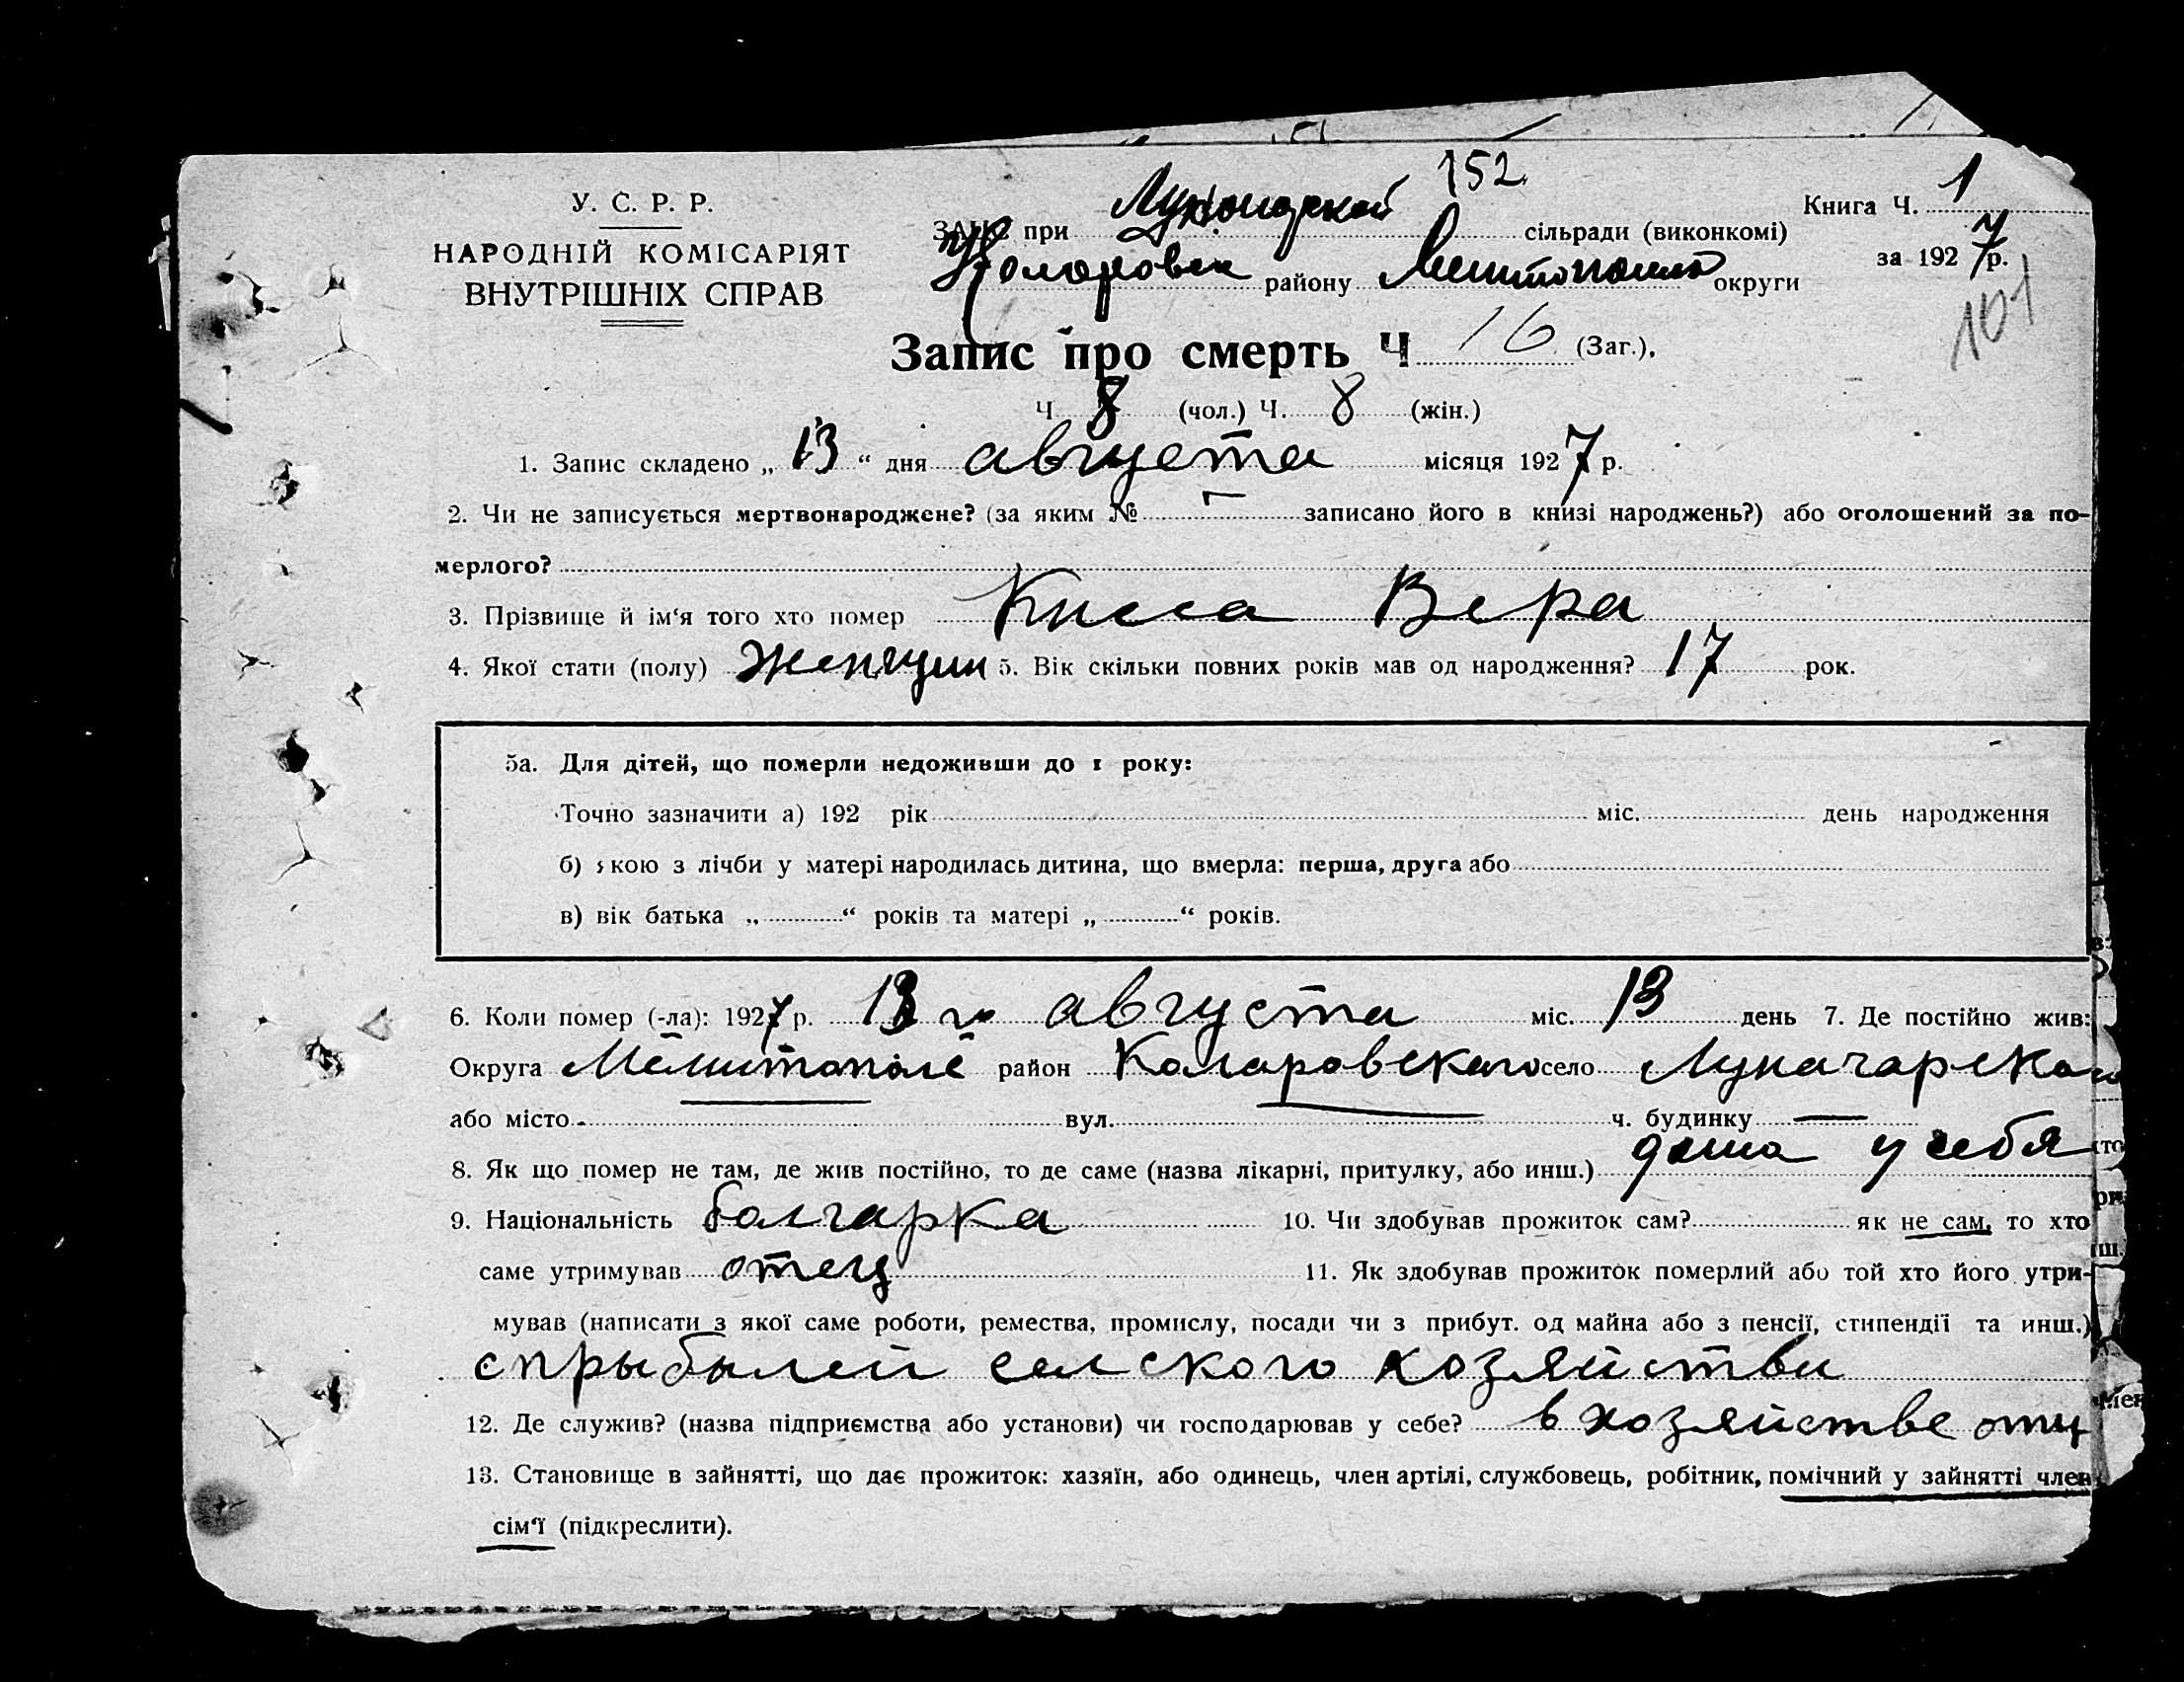 152
У. С. Р. Р.
НАРОДНІЙ КОМІСАРІЯТ
ВНУТРІШНІХ СПРАВ
ЗАГС при сільради (виконкомі)
Книга Ч. 1
за 1927 р.
Коларовск району округи
101
Запис про смерть Ч 16 (Заг.),
Ч 8 (чол.) Ч. 8 (жін.)
1. Запис складено „ 13 “ дня августа місяця 1927 р.
2. Чи не записується мертвонароджене? (за яким № — записано його в книзі народжень?) або оголошений за по-
мерлого?
3. Прізвище й ім‘я того хто помер Кисса Вера
4. Якої стати (полу) Женщин 5. Вік скільки повних років мав од народження? 17 рок.
5а. Для дітей, що померли недоживши до 1 року:
Точно зазначити а) 192 рік міс. день народження
б) якою з лічби у матері народилась дитина, що вмерла: перша, друга або
в) вік батька „ “ років та матері „ “ років.
6. Коли помер (-ла): 1927 р. 13 го августа міс. 13 день 7. Де постійно жив:
Округа район Коларовского село Луначарского
або місто вул. ч. будинку —
8. Як що помер не там, де жив постійно, то де саме (назва лікарні, притулку, або инш.) дома у себя
9. Національність болгарка 10. Чи здобував прожиток сам? як не сам, то хто
саме утримував отец 11. Як здобував прожиток померлий або той хто його утри-
мував (написати з якої саме роботи, ремества, промислу, посади чи з прибут. од майна або з пенсії, стипендії та инш.)
спрыбылей селского хозяйства
12. Де служив? (назва підприємства або установи) чи господарював у себе? в хозяйстве отц
13. Становище в зайнятті, що дає прожиток: хазяїн, або одинець, член артілі, службовець, робітник, помічний у зайнятті член
сім‘ї (підкреслити).